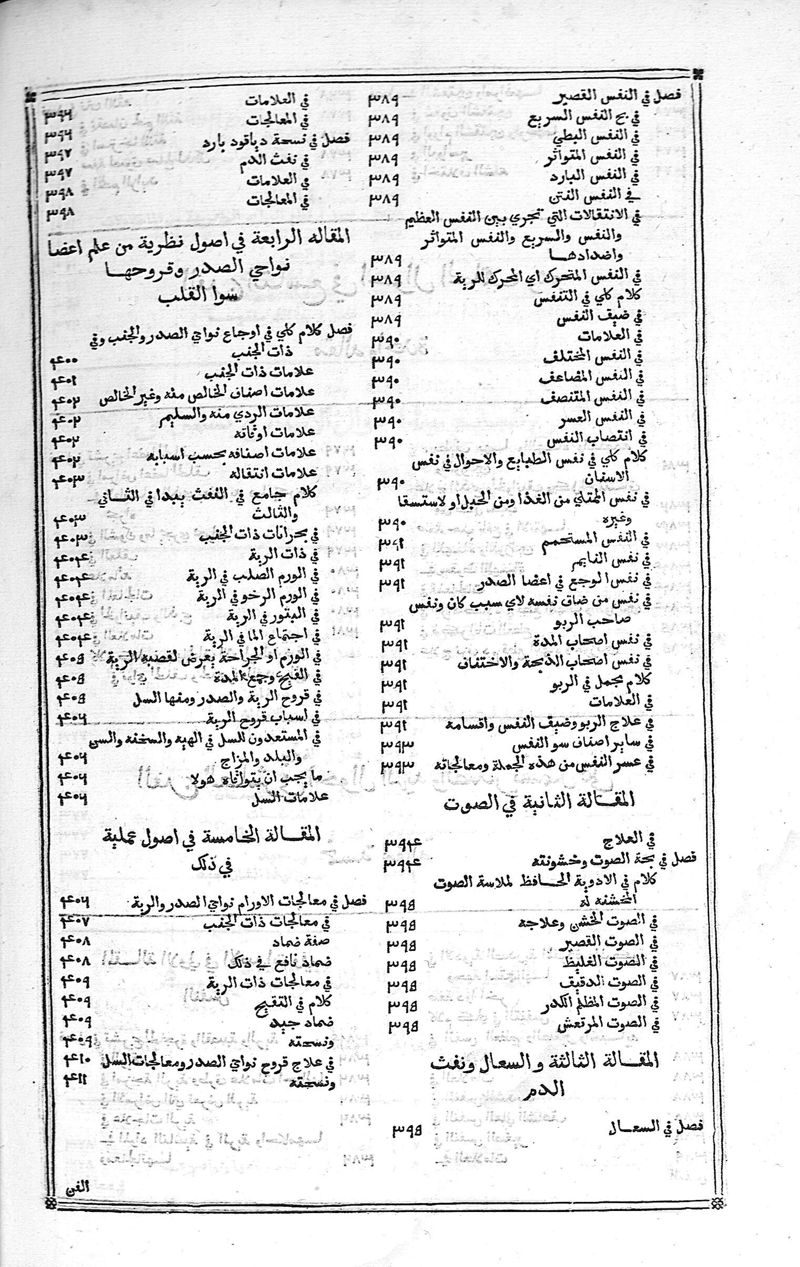 فصل في النفس القصير ٣٨٩
في بح النفس السريع ٣٨٩
في النفس البطي ٣٨٩
في النفس المتواثر ٣٨٩
في النفس البارد ٣٨٩
في النفس النتى ٣٨٩
في الانتقالات التي تجري بين النفس العظيم
والنفس والسريع والنفس المتواثر
واضدادها ٣٨٩
في النفس المتحرك اي المحرك للرية ٣٨٩
كلام كلي في التنفس ٣٨٩
في ضيف النفس ٣٨٩
في العلامات ٣٩٠
في النفس المختلف ٣٩٠
في النفس المضاعف ٣٩٠
في النفس المتنصف ٣٩٠
في النفس العسر ٣٩٠
في انتصاب النفس ٣٩٠
كلام كلي في نفس الطبايع والاحوال في نفس
الاسفان ٣٩٠
في نفس الممتلي من الغذا ومن الحبل او لاستسقا
وغيره ٣٩٠
في النفس المستحمم ٣٩١
في نفس النايم ٣٩١
في نفس الوجع في اعضا الصدر ٣٩١
في نفس من ضاق نفسه لاي سبب كان ونفس
صاحب الربو ٣٩١
في نفس اصحاب المدة ٣٩١
في نفس اصحاب الذبحة والاختفاف ٣٩١
كلام مجمل في الربو ٣٩١
في العلامات ٣٩١
في علاج الربو وضيف النفس واقسامه ٣٩١
في ساير اصناف سو النفس ٣٩٣
في عسر النفس من هذه الجملة ومعالجاته ٣٩٣
المقالة الثانية في الصوت
في العلاج ٣٩٤
فصل في بحة الصوت وخشونته ٣٩٤
كلام في الادوية الحافظ لملاسة الصوت
المخشفه له ٣٩٥
في الصوت الخشن وعلاجه ٣٩٥
في الصوت القصير ٣٩٥
في الصوت الغليظ ٣٩٥
في الصوت الدقيف ٣٩٥
في الصوت المظلم الكدر ٣٩٥
في الصوت المرتعش ٣٩٥
المقالة الثالثة و السعال ونفث
الدم
فصل في السعال ٣٩٥
في العلامات ٣٩٦
في المعالجات ٣٩٦
فصل في نسحة دياقود بارد ٣٩٧
في نفث الدم ٣٩٧
في العلامات ٣٩٨
في المعالجات ٣٩٨
المقاله الرابعة في اصول نظرية من علم اعضا
نواحي الصدر وقروحها
سوا القلب
فصل كلام كلي في اوجاع نواحي الصدر والجنب وفي
ذات الجنب ٤٠٠
علامات ذات الجنب ٤٠١
علامات اصناف الخالص منه وغير الخالص ٤٠٢
علامات الردي منه والسليم ٤٠٢
علامات اوثاته ٤٠٢
علامات اصنافه بحسب اسبابه ٤٠٢
علامات انتقاله ٤٠٣
كلام جامع في النفث يبدا في الثاني
والثالث ٤٠٣
في بحرانات ذات الجنب ٤٠٣
في ذات الرية ٤٠٤
في الورم الصلب في الرية ٤٠٤
في الورم الرخو في الرية ٤٠٤
في البثور في الرية ٤٠٤
في اجتماع الما في الرية ٤٠٤
في الورم او الجراحة يعرض لقصبة الرية ٤٠٥
في القيح وجمع المدة ٤٠٥
في قروح الرية والصدر ومنها السل ٤٠٥
في اسباب قروح الرية ٤٠٦
في المستعدون للسل في الهية والسخنه والسن
والبلد والمزاج ٤٠٦
ما يجب ان يتوقاه هولا ٤٠٦
علامات السل ٤٠٦
المقالة الخامسة في اصول عملية
في ذلك
فصل في معالجات الاورام نواحي الصدر والرية ٤٠٦
في معالجات ذات الجنب ٤٠٧
صفة ضماد ٤٠٨
ضماد نافع في ذلك ٤٠٨
في معالجات ذات الرية ٤٠٩
كلام في التقيح ٤٠٩
ضماد جيد ٤٠٩
ونسحته ٤٠٩
في علاج قروح نواحي الصدر ومعالجات السل ٤١٠
ونسحته ٤١١
الفن